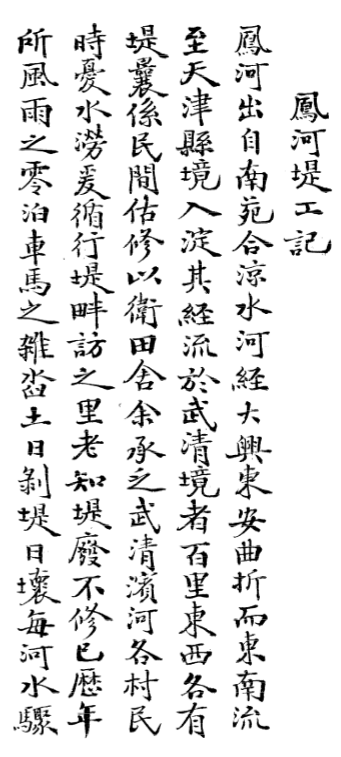 鳳河堤工記
鳳河出自南苑合涼水河經大興東安曲折而東南流
至天津縣境入淀其經流於武清境者百里東西各有
堤曩係民間估修以衛田舍余承乏武清濱河各村民
時憂水澇爰循行堤畔訪之里老知堤廢不修已歷年
所風雨之零泊車馬之雜沓土日剝堤日壞每河水驟